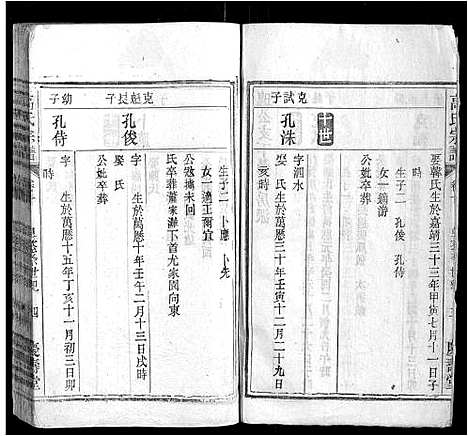 高氏宗譜
慶壽堂
娶韓氏生於嘉靖三十三年甲寅七月十一日子
時
生子二 孔俊 孔侍
女一適游
十世
克試子
孔洙
字泗水
生於萬曆三十年壬寅十二月十九日
娶 氏
亥時
生子二 卜應 卜先
女一適王爾宜
公妣卒葬
氏卒葬董家灘下首尤家園向東
克魁長子
孔俊
字 生於萬曆十年壬午二月十三日戌時
娶 氏
公妣卒葬
幼子
孔侍
字 生於萬曆十五年丁亥十一月初三日卯
時
高氏宗譜
四
慶壽堂